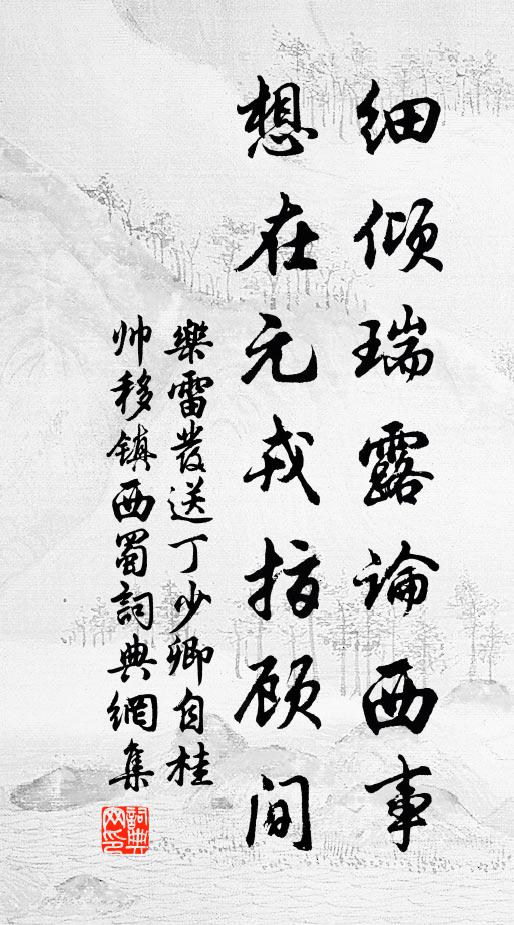 细倾瑞露論西事
想在元戎指顾間
樂雷發送丁少卿自桂
帅移镇西蜀詞典網集
詞典
网印